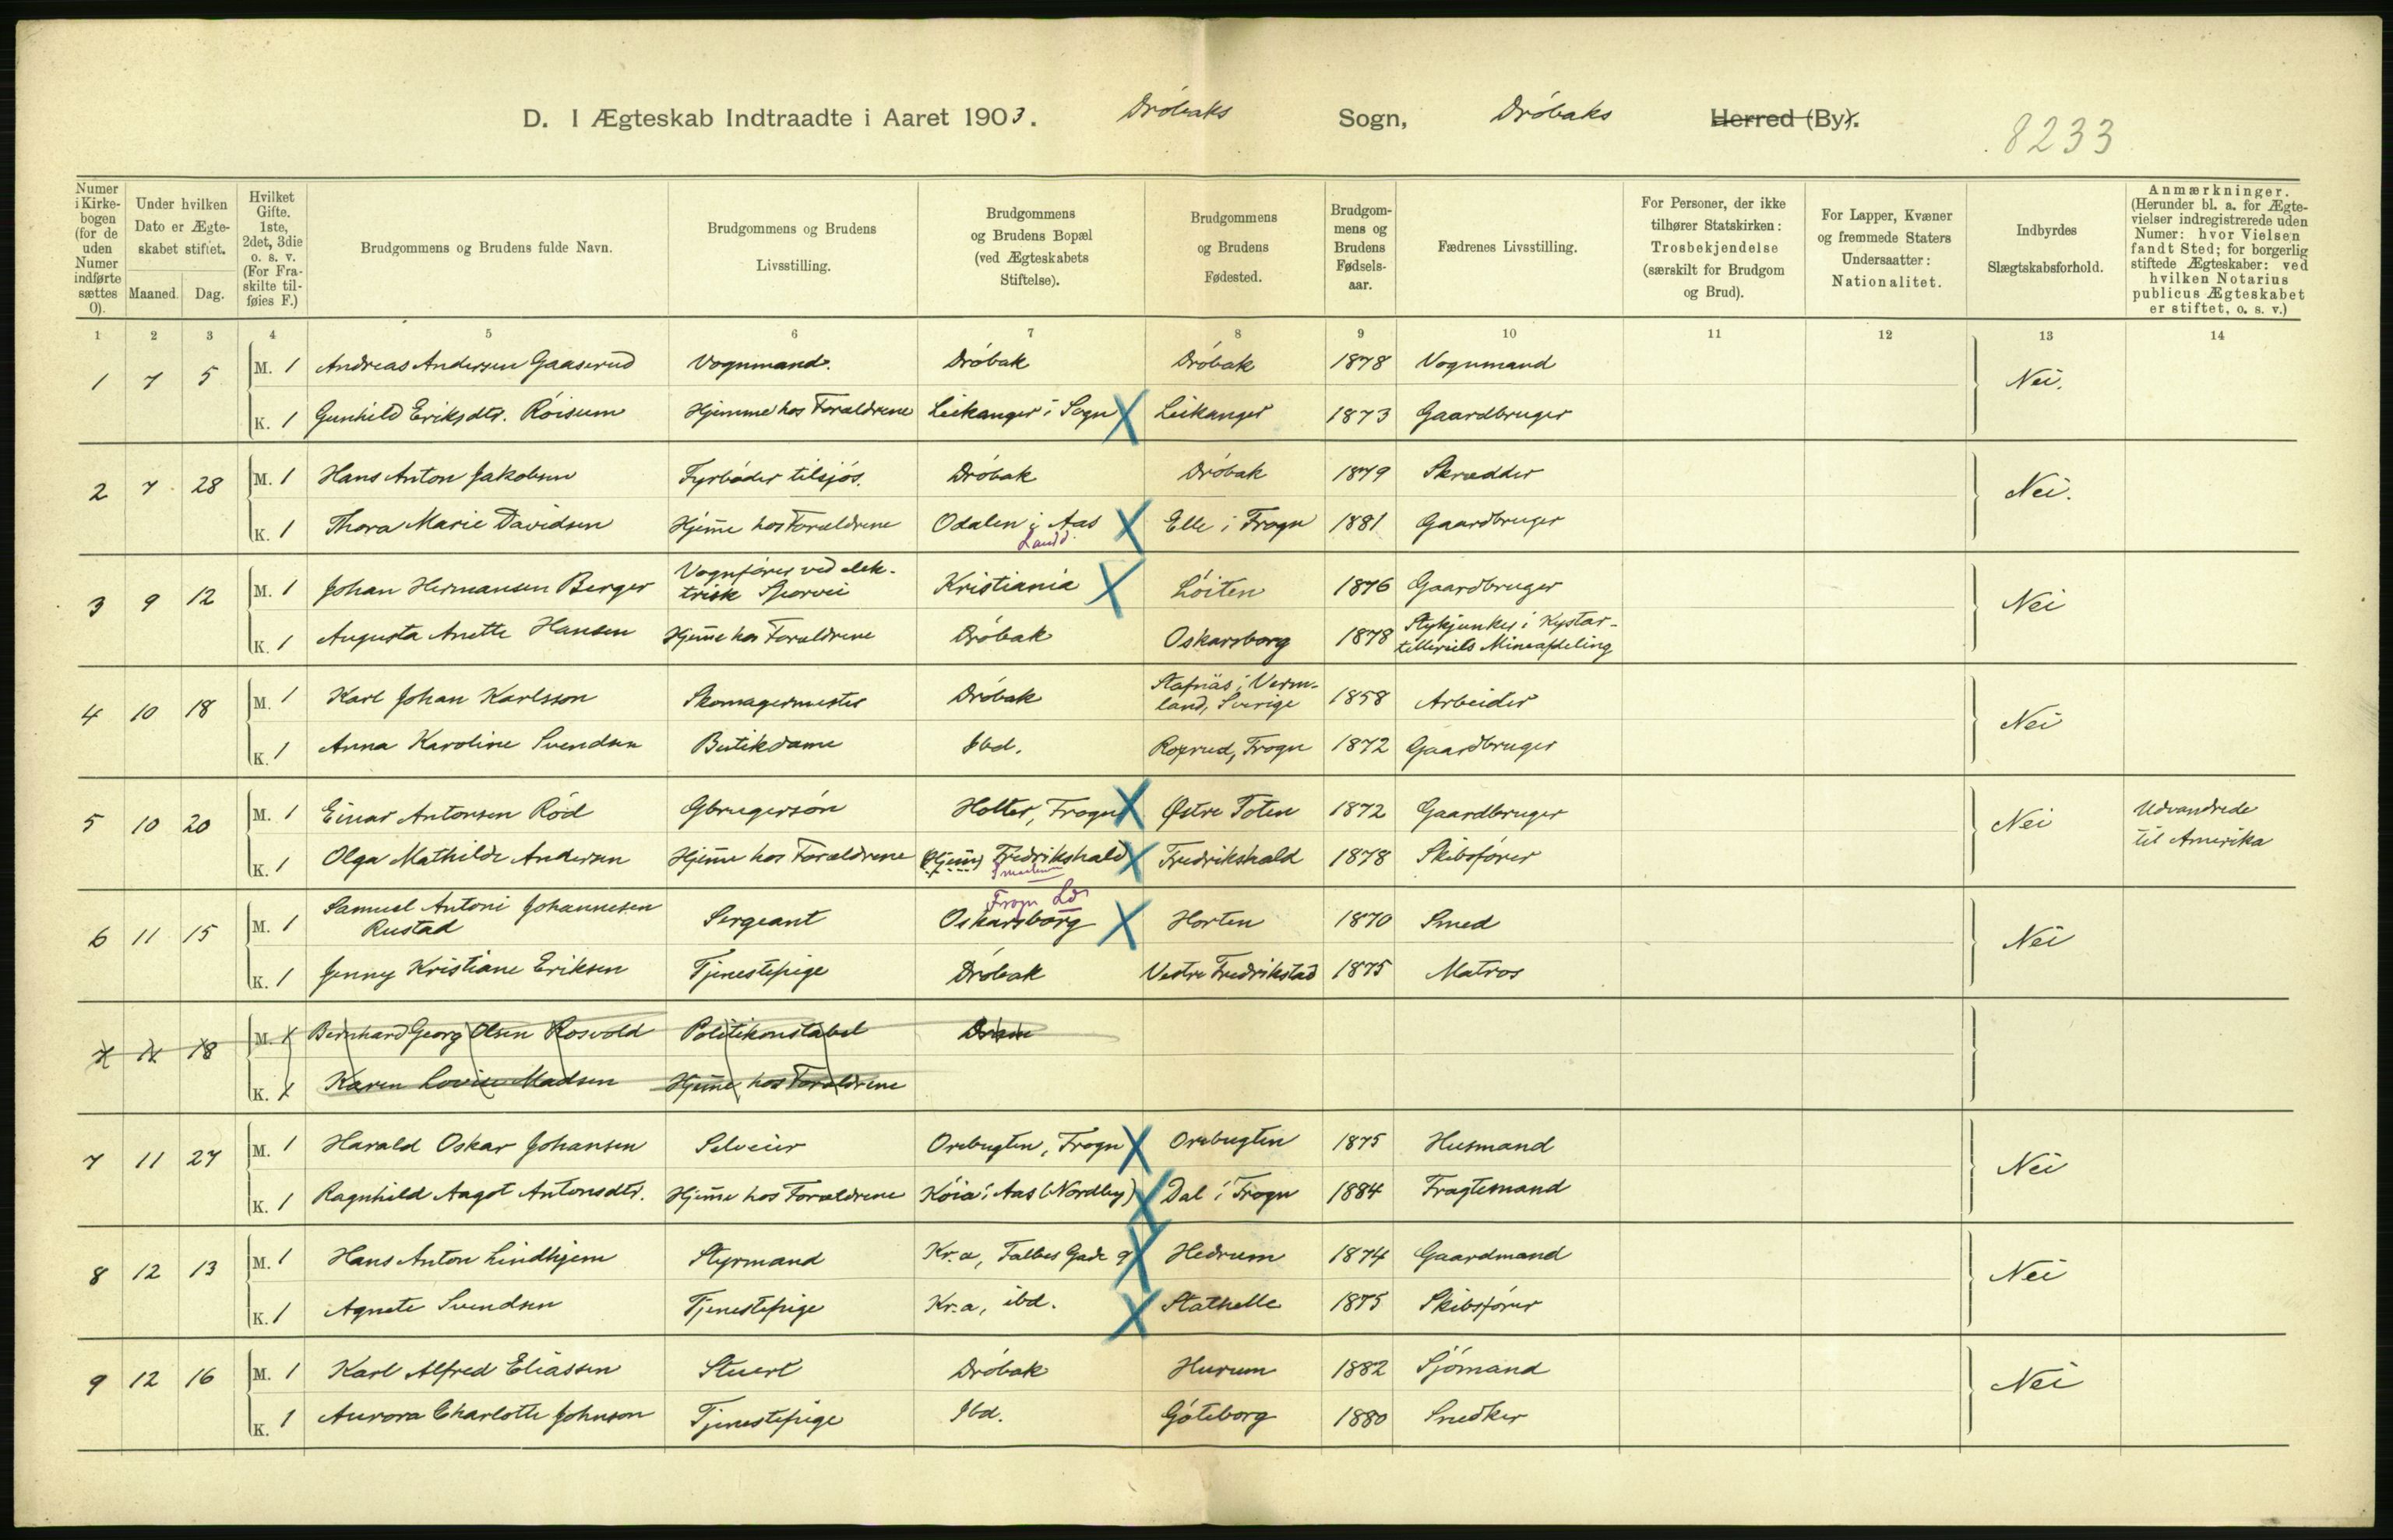 D. I Ægteskab Indtraadte i Aaret 1903. Dröbaks Sogn, Dröbaks Herred (By).
8233
Numer i Kirkebogen (for de uden Numer indførte sættes 0).
Under hvilken Dato er Ægteskabet stiftet. Maaned. Dag.
Hvilket Gifte. 1ste, 2det, 3die o. s. v. (For Fraskilte tilføies F.)
Brudgommens og Brudens fulde Navn.
Brudgommens og Brudens Livsstilling.
Brudgommens og Brudens Bopæl (ved Ægteskabets Stiftelse).
Brudgommens og Brudens Fødested.
Brudgommens og Brudens Fødselsaar.
Fædrenes Livsstilling.
For Personer, der ikke tilhører Statskirken: Trosbekjendelse (særskilt for Brudgom og Brud).
For Lapper, Kvæner og fremmede Staters Undersaatter: Nationalitet.
Indbyrdes Slægtskabsforhold.
Anmærkninger. (Herunder bl. a. for Ægtevielser indregistrerede uden Numer: hvor Vielsen fandt Sted; for borgerlig stiftede Ægteskaber: ved hvilken Notarius publicus Ægteskabet er stiftet, o. s. v.)
1 2 3 4 5 6 7 8 9 10 11 12 13 14
1 7 5 M. 1 Andreas Andersen Gaaserud Vognmand. Dröbak Dröbak 1878 Vognmand Nei.
K. 1 Gunhild Eriksdtr. Röisum Hjemme hos Forældrene Leikanger i Sogn Leikanger 1873 Gaardbruger
2 7 28 M. 1 Hans Anton Jakobsen Fyrböder tilsjös. Dröbak Dröbak 1879 Skrædder Nei.
K. 1 Thora Marie Davidsen Hjem̄e hos Forældrene Odalen i Aas Elle i Frogn 1881 Gaardbruger
Landd.
3 9 12 M. 1 Johan Hermansen Berger Vognförer ved elektrisk Sporvei Kristiania Löiten 1876 Gaardbruger Nei
K. 1 Augusta Anette Hansen Hjem̄e hos Forældrene Dröbak Oskarsborg 1878 Stykjunker i Kystartilleriets Mineafdeling
4 10 18 M. 1 Karl Johan Karlsson Skomagermester Dröbak Stafnäs i Vermland, Sverige 1858 Arbeider Nei
K. 1 Anna Karoline Svendsen Butikdame Ibd. Roprud, Frogn 1872 Gaardbruger
5 10 20 M. 1 Einar Antonsen Röd Gbrugersön Holter, Frogn Østre Toten 1872 Gaardbruger Nei Udvandrede til Amerika
K. 1 Olga Mathilde Andersen Hjem̄e hos Forældrene (Hjem̄) Fredrikshald Fredrikshald 1878 Skibsförer
Frogn Ld.
6 11 15 M. 1 Samuel Antoni Johannesen Rustad Sergeant Oskarsborg Horten 1870 Smed Nei
K. 1 Jenny Kristiane Eriksen Tjenestepige Dröbak Vestre Fredrikstad 1875 Matros
7 11 18 M. 1 Bernhard Georg Olsen Rosvold Politikonstabel
K. 1 Karen Lovise Madsen Hjem̄e hos Forældrene
7 11 27 M. 1 Harald Oskar Johansen Selveier Orebugten, Frogn Orebugten 1875 Husmand Nei
K. 1 Ragnhild Aagot Antonsdtr. Hjem̄e hos Forældrene Köia i Aas (Nordby) Dal i Frogn 1884 Fragtemand
8 12 13 M. 1 Hans Anton Lindhjem Styrmand Kr.a, Falbes Gade 9 Hedrum 1874 Gaardmand Nei
K. 1 Agnete Svendsen Tjenestepige Kr.a, ibd. Stathelle 1875 Skibsförer
9 12 16 M. 1 Karl Alfred Eliassen Stuert Dröbak Hurum 1882 Sjömand Nei
K. 1 Aurora Charlotte Johnson Tjenestepige Ibd. Göteborg 1880 Snedker